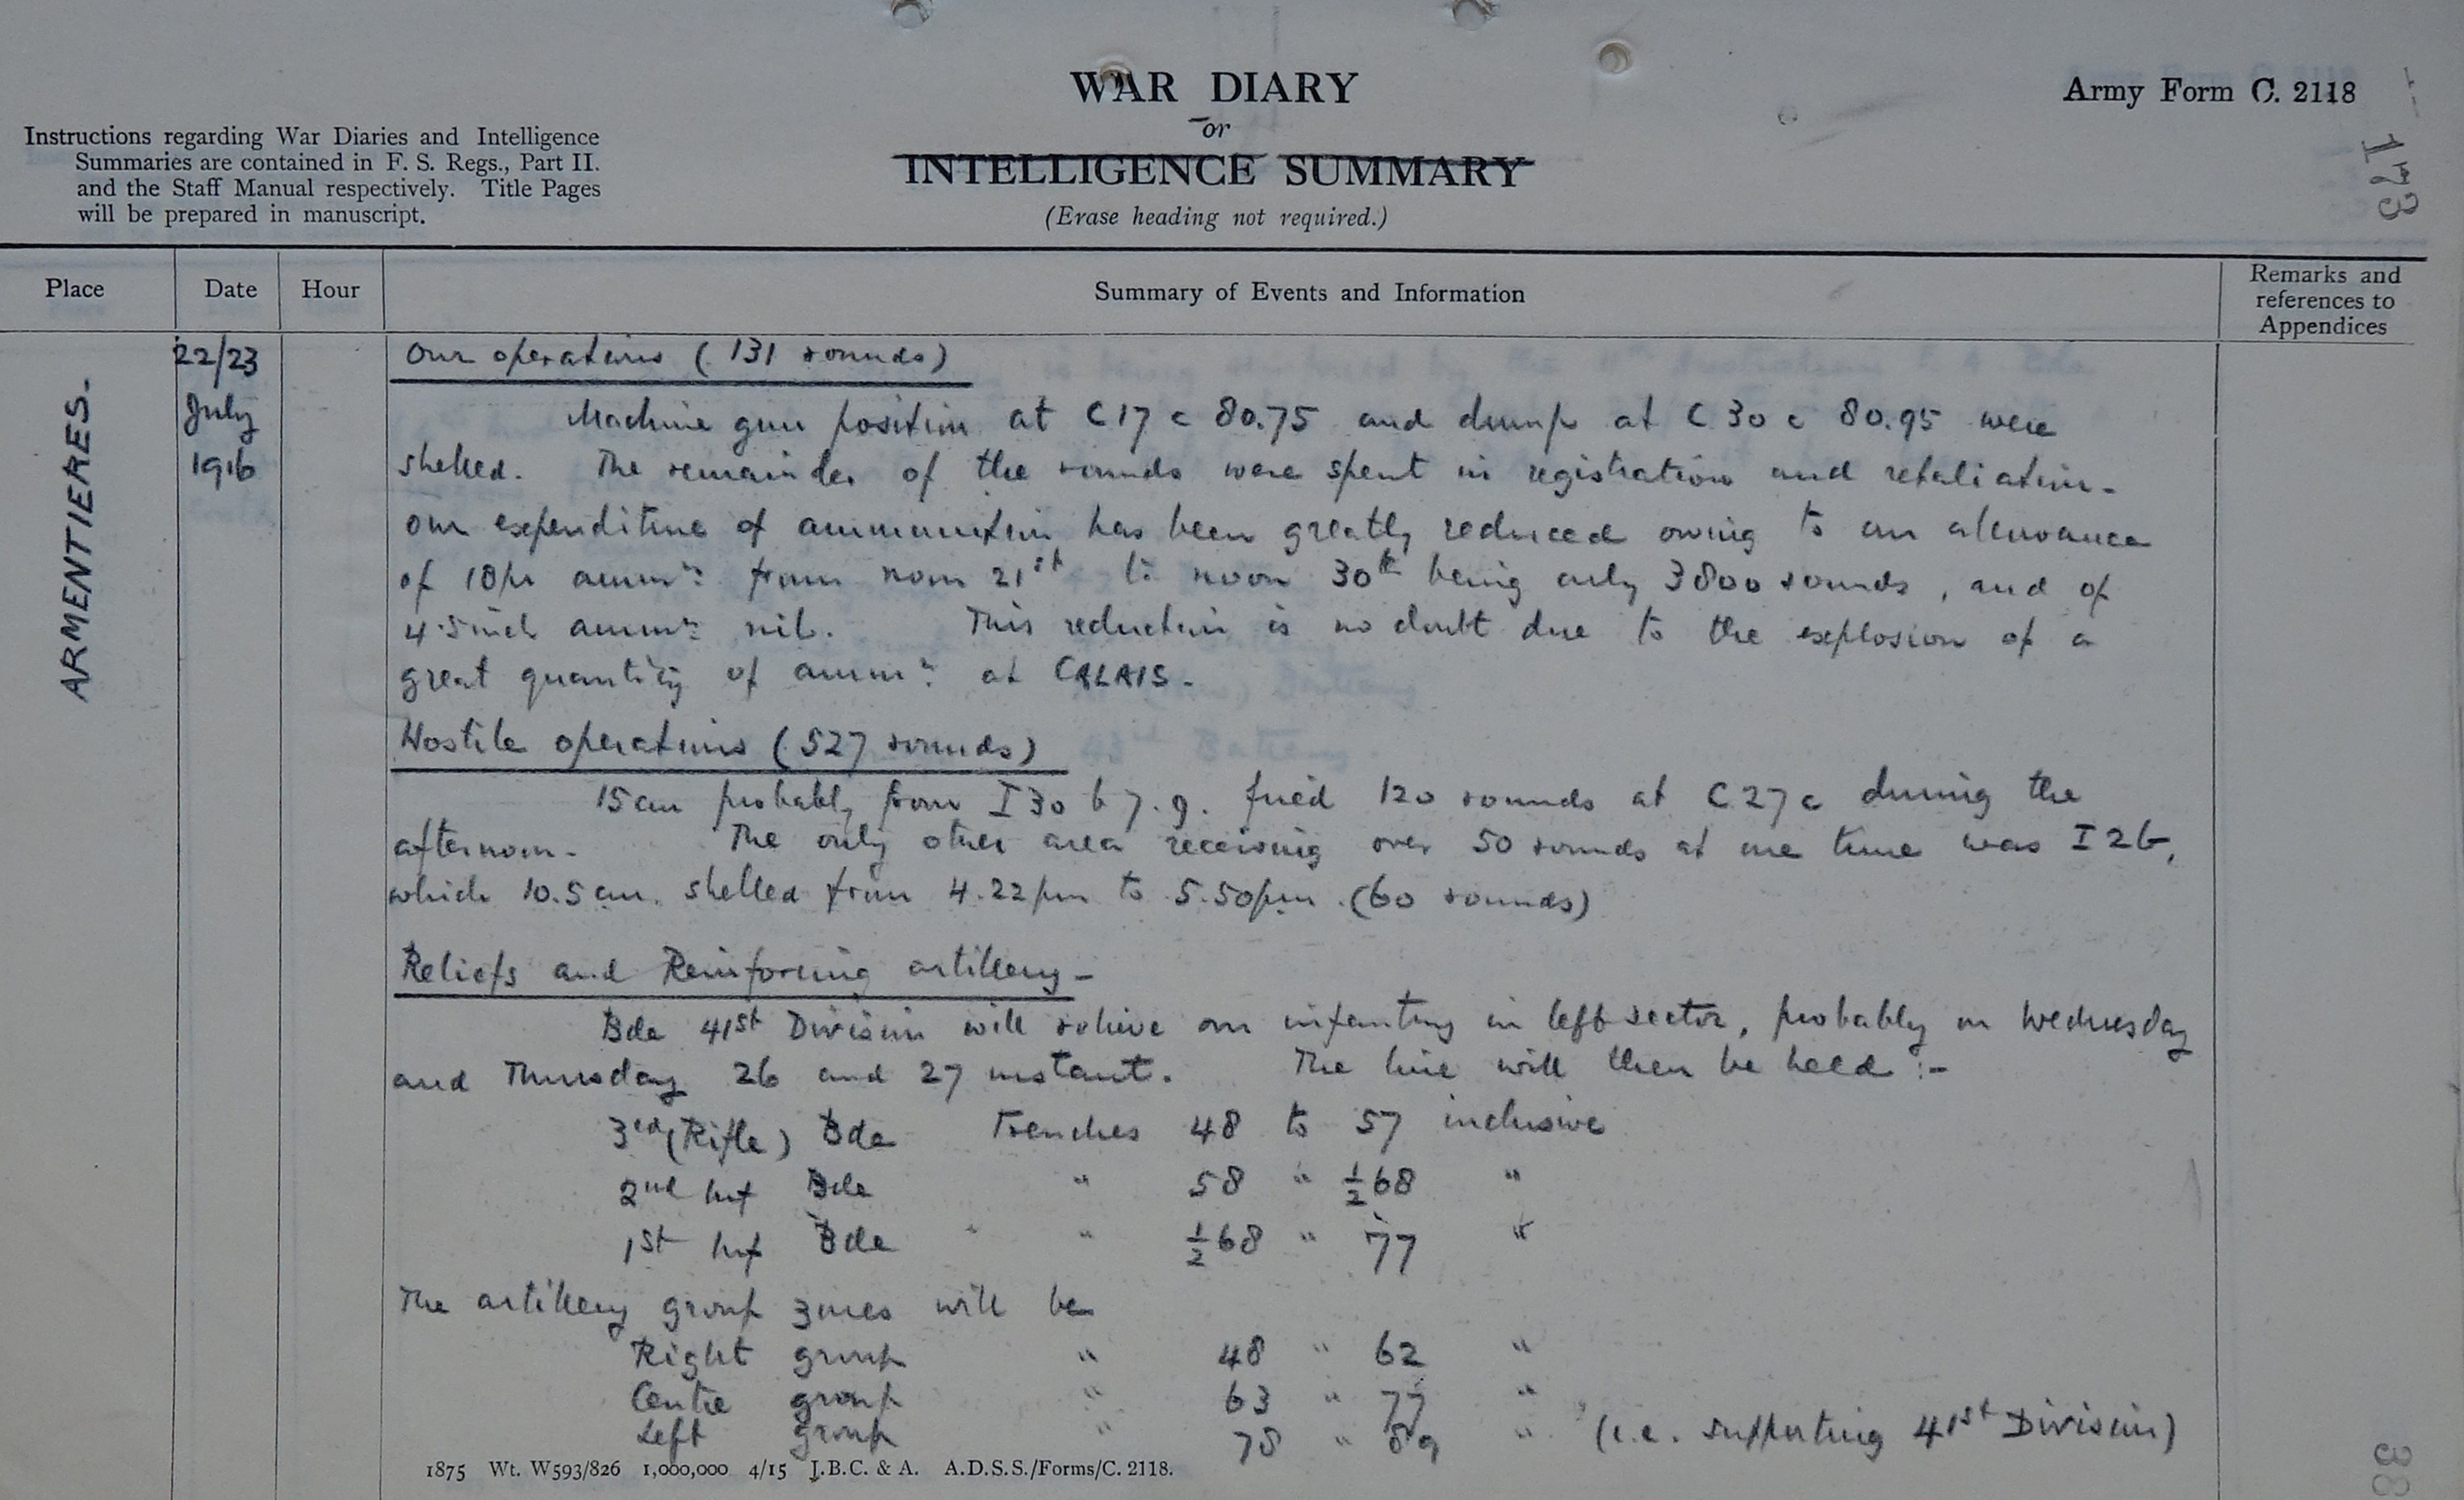 WAR DIARY
or
INTELLIGENCE SUMMARY
(Erase heading not required.)
Army Form C. 2118
173
Instructions regarding War Diaries and Intelligence
Summaries are contained in F. S. Regs., Part II.
and the Staff Manual respectively. Title Pages
will be prepared in manuscript.
Place Date Hour Summary of Events and Information Remarks and
references to
Appendices
ARMENTIERES.
22/23
July
1916
Our operations (131 rounds)
Machine gun position at C17 c 80.75 and dump at C 30 c 80.95 were
shelled. The remainder of the rounds were spent in registration and retaliation.
Our expenditure of ammunition has been greatly reduced owing to an allowance
of 18pr ammn: from noon 21st to noon 30th being only 3800 rounds, and of
4.5 inch ammn: nil. This reduction is no doubt due to the explosion of a
great quantity of ammn: at CALAIS.
Hostile operations (527 rounds)
15cm probably from I 30 b 7.9. fired 120 rounds at C 27 c during the
afternoon. The only other area receiving over 50 rounds at one time was I 2 b,
which 10.5 cm. shelled from 4.22pm to 5.50pm. (60 rounds)
Reliefs and Reinforcing artillery-
Bde 41st Division will relieve our infantry in left sector, probably on Wednesday
and Thursday 26 and 27 instant. The line will then be held :-
3rd (Rifle) Bde Trenches 48 to 57 inclusive
2nd Inf Bde " 58 " ½68 "
1st Inf Bde " " ½68 " 77 "
The artillery group zones will be
Right group " 48 " 62 "
Centre group " 63 " 77 "
Left group " 78 " 89 " (i.e. supporting 41st Division)
1875 Wt. W593/826 1,000,000 4/15 J.B.C. & A. A.D.S.S./Forms/C. 2118.
38